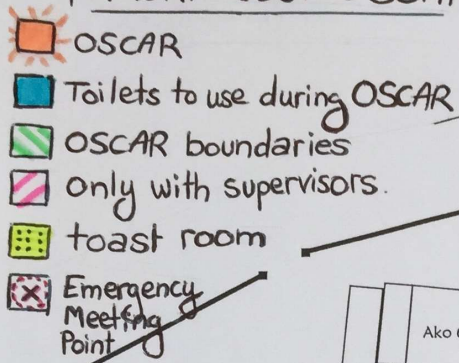 OSCAR
Toilets to use during OSCAR
OSCAR boundaries
only with supervisors.
toast room
Emergency
Meeting
Point
Ako